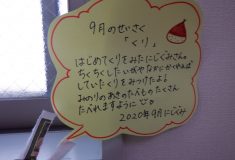 9月のせいさく
「くり」
はじめてくりをみたにじぐみさん。
ちくちくしたいがや
していたくりをみつけたよ!
みのりのあきのたべものたくさん
たべれますように
2020年9月 にじぐみ